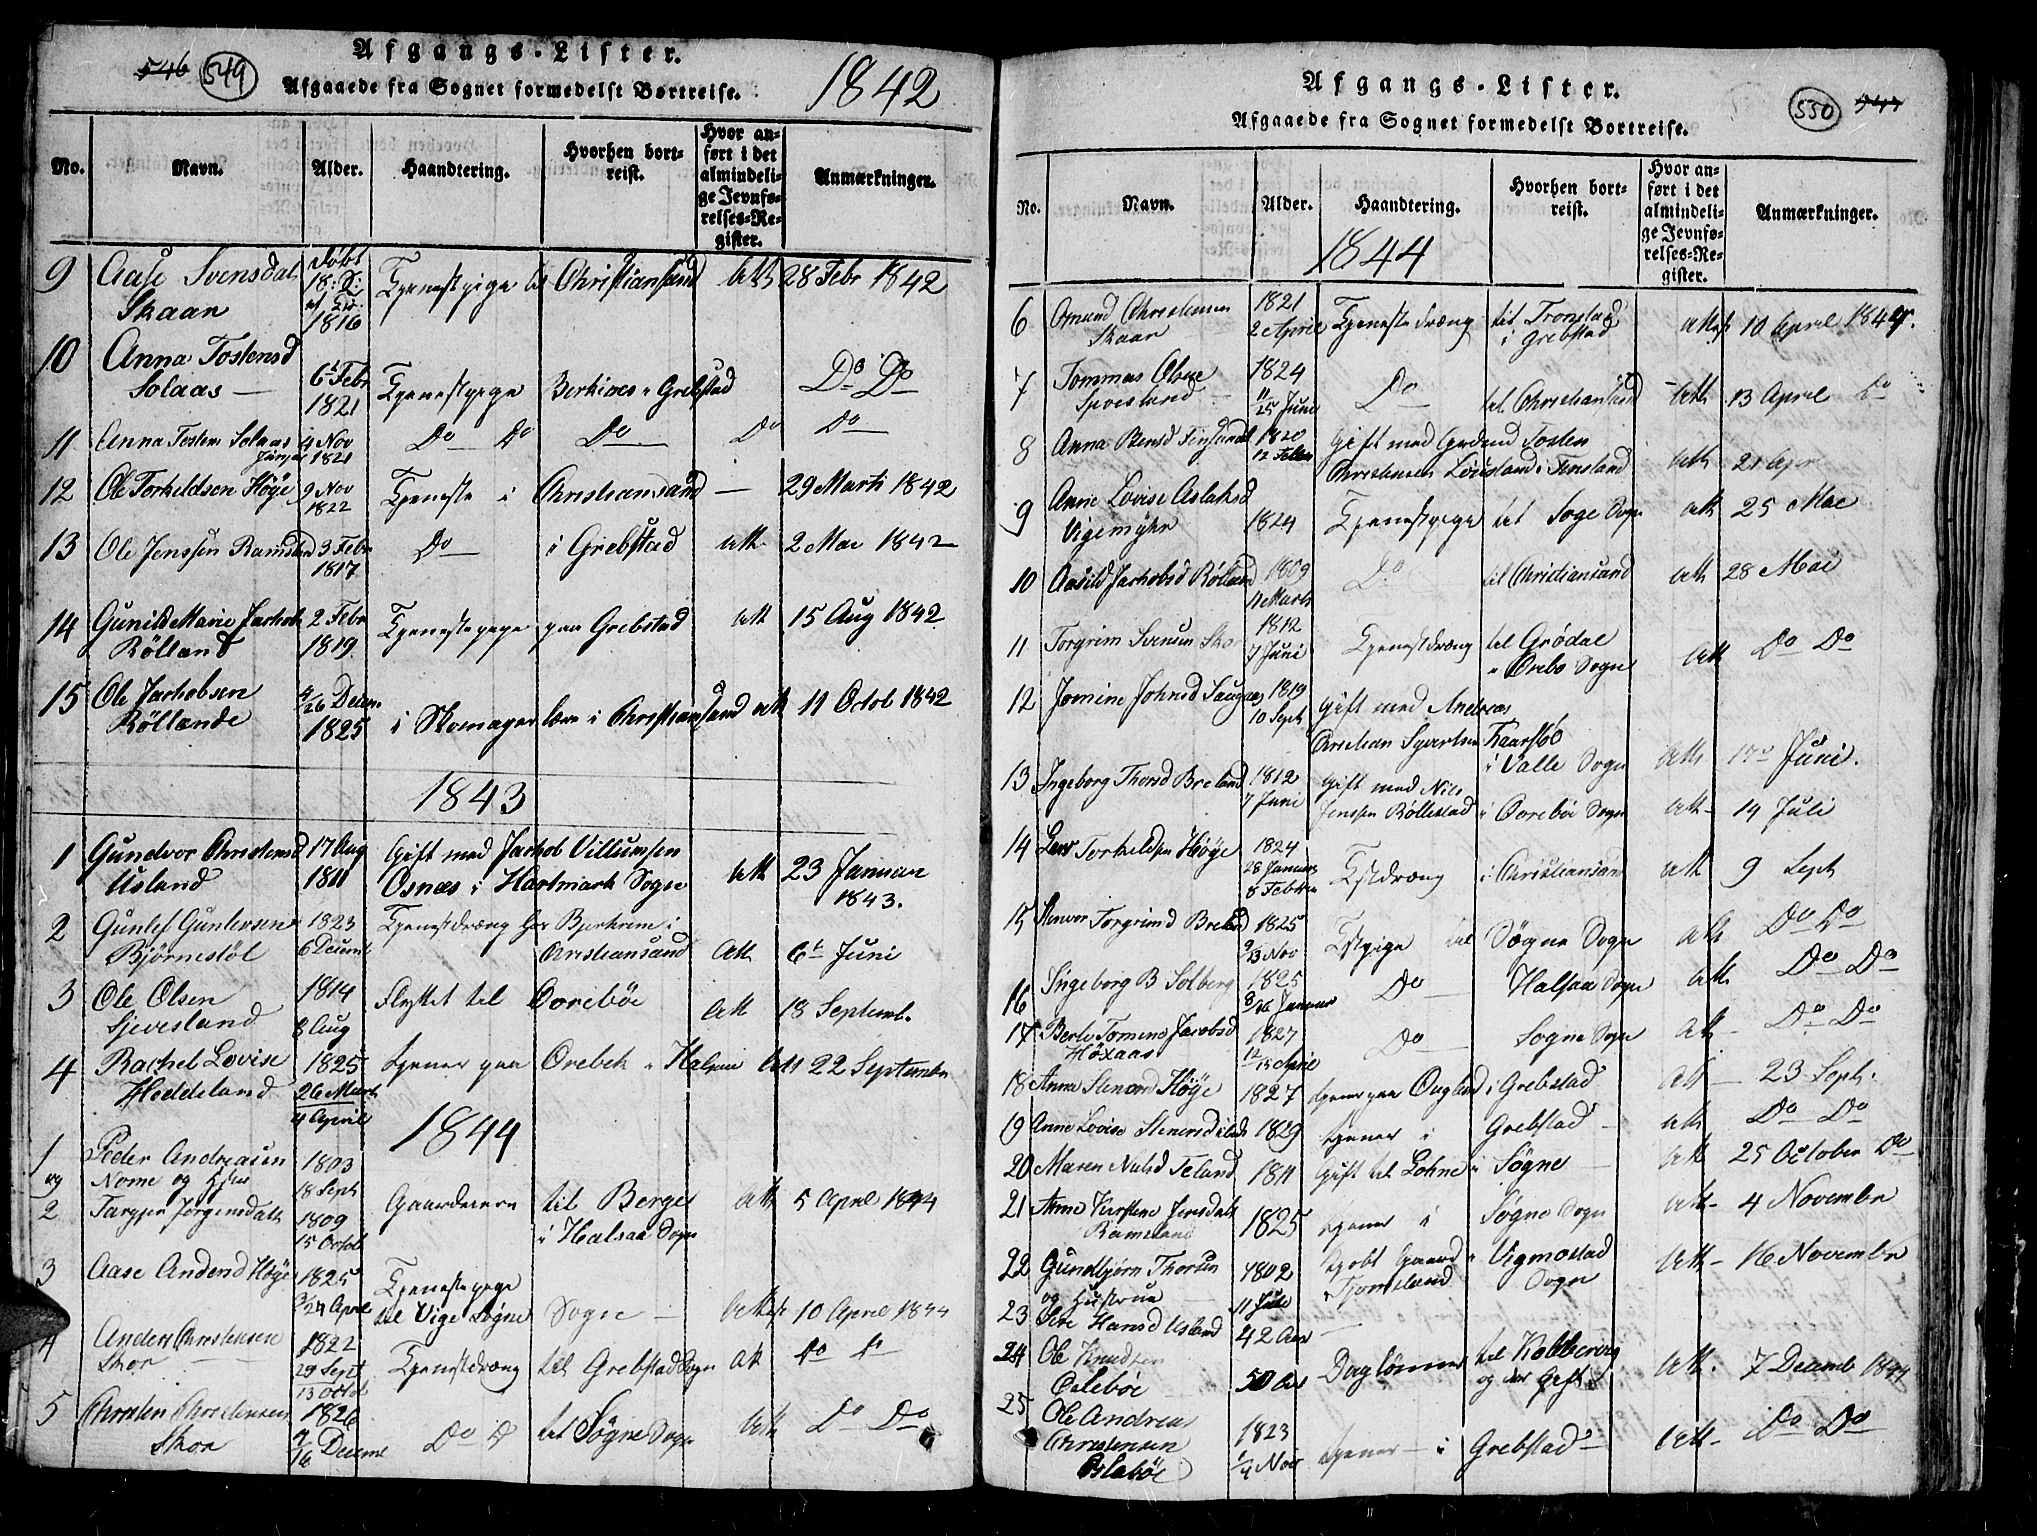 546 549
Afgangs-Lister.
Afgaaede fra Sognet formedelst Bortreise. 1842
No. Navn. Alder. Haandtering. Hvorhen bortreist. Hvor anført i det almindelige Jevnførelses-Register. Anmærkninger.
9 Aase Svensdat Skaan døbt 18: 1816 Tjenestpige til Christiansand Att 28 Febr 1842
10 Anna Tostensd Solaas 6t Febr 1821 Tjenestpige Berkines i Grebstad Do Do
11 Anna Tostens Solaas 4 Nov 1821 Do Do Do Do Do
12 Ole Torkeldsen Höye 9 Nov 1822 Tjeneste i Christiansand — 29 Marti 1842
13 Ole Jenssen Ramsland 3 Febr 1817 Do i Grebstad att 2 Mai 1842
14 Gunild Marie Jachobs Rölland 2 Febr 1819 Tjenestepige paa Grebstad att 15 Aug 1842
15 Ole Jachobsen Röllande 4/26 Decem 1825 i Skomager lære i Christiansand att 11 Octob 1842
1843
1 Gundvor Christensd Usland 17 Aug 1811 Gift med Jachob Villumsen Osnæs i Hartmark Sogn att 23 Januar 1843.
2 Gunlef Gunlevsen Björnestöl 1823 6 Decemb Tjenestdræng hos Bjerkrem i Christiansand Att 6t Juni
3 Ole Olsen Sjevesland 1814 8 Aug Flyttet til Oorebøe att 18 Septemb.
4 Rachel Lovise Heddeland 1825 26 Marts 4 April tjener paa Orebek i Halsaa att 22 Septembr
1844
1 Peder Andreasen Nome og Hstru 1803 18 Sept
og
2 Targjer Jörgensdatt 1809 15 Octob Gaardeiere til Berge i Halsaa Sogn att 5 April 1844
3 Aase Andersd Höye 1825 2/24 April Tjenestepige til Vige Søgne Sogn — Attest 10 April 1844
4 Anders Christensen Skor 1822 29 Sept 13 Octob Tjenestdræng til Grebstad Sogn att do do
5 Christen Christensen Skor 1826 9/16 Decemb Do D til Søgne Sogn att Do Do
550 547
Afgangs-Lister.
Afgaaede fra Sognet formedelst Bortreise.
No. Navn. Alder. Haandtering. Hvorhen bortreist. Hvor anført i det almindelige Jevnførelses-Register. Anmærkninger.
1844
6 Omund Christensen Skaar 1821 2 April Tjenestedræng til Tronstad i Grebstad attest 10 April 1844.
7 Tommas Olsen Sjvesland 1824 11 25 Juni Do til Christiansand att 13 April Do
8 Anna Berisd Finsland 1820 12 Febr Gift med Tosten Christensen Löïesland i Finsland att 21 Apr
9 Anne Lovise Aslaksd Vigemÿhr 1824 Tjenestpige til Søgne Sogn att 25 Mai
10 Aasild Jachobsd Rölland 1809 11 Marts Do til Christiansand att 28 Mai
11 Torgrim Svensen Skor 1812 7 Juni Tjenestdræng til Grödal i Orebo Sogn att Do Do
12 Jomine Johnsd Laugaas 1819 10 Sept gift med Andreas Christian Syvertsen Kaarstöe i Valle Sogn att 17 Juni.
13 Ingeborg Thorsd Breland 1812 7 Juni gift med Nils Jenssen Röllestad i Oorebøe Sogn att 14 Juli
14 Lars Torkeldsen Höye 1824 28 Januar 8 Febr Tjstdræng i Christiansand att 9 Sept
15 Stenvor Torgrimsd Breland 1825 9/13 Nov Tjstpige til Søgne Sogn att Do Do
16 Ingeborg B Solberg 1825 8/26 Januar Do Halsaa Sogn att Do Do
17 Berte Tomine Jacobsd Höxaas 1827 12/15 April Do Sogne Sogn att Do Do
18 Anna Stenersd Höye 1827 tjener paa Ougland i Grebstad att 23 Sept.
19 Anne Lovise Stenersd 1829 tjener i Grebstad att Do Do
20 Maren Nielsd Teland 1811 gift til Lohne i Søgne att 25 October Do
21 Anne Kirstine Jensdatt Ramsland 1825 tjener i Søgne Sogn att 4 Novembr
22 Gundbjörn Thorsen og Hustrue 1802 11 Juli kjøbt Gaard i Tjomsland Vigmostad Sogn att 16 Novembr
23 Siri Hansd Usland 42 Aar
24 Ole Knudsen Oslebøe 50 Aar Daglönner til Kolbervig og der Gift att 7 Decemb 1844
25 Ole Andreas Christensen Oslebøe 1823 1/4 Nov tjener i Grebstad att Do Do